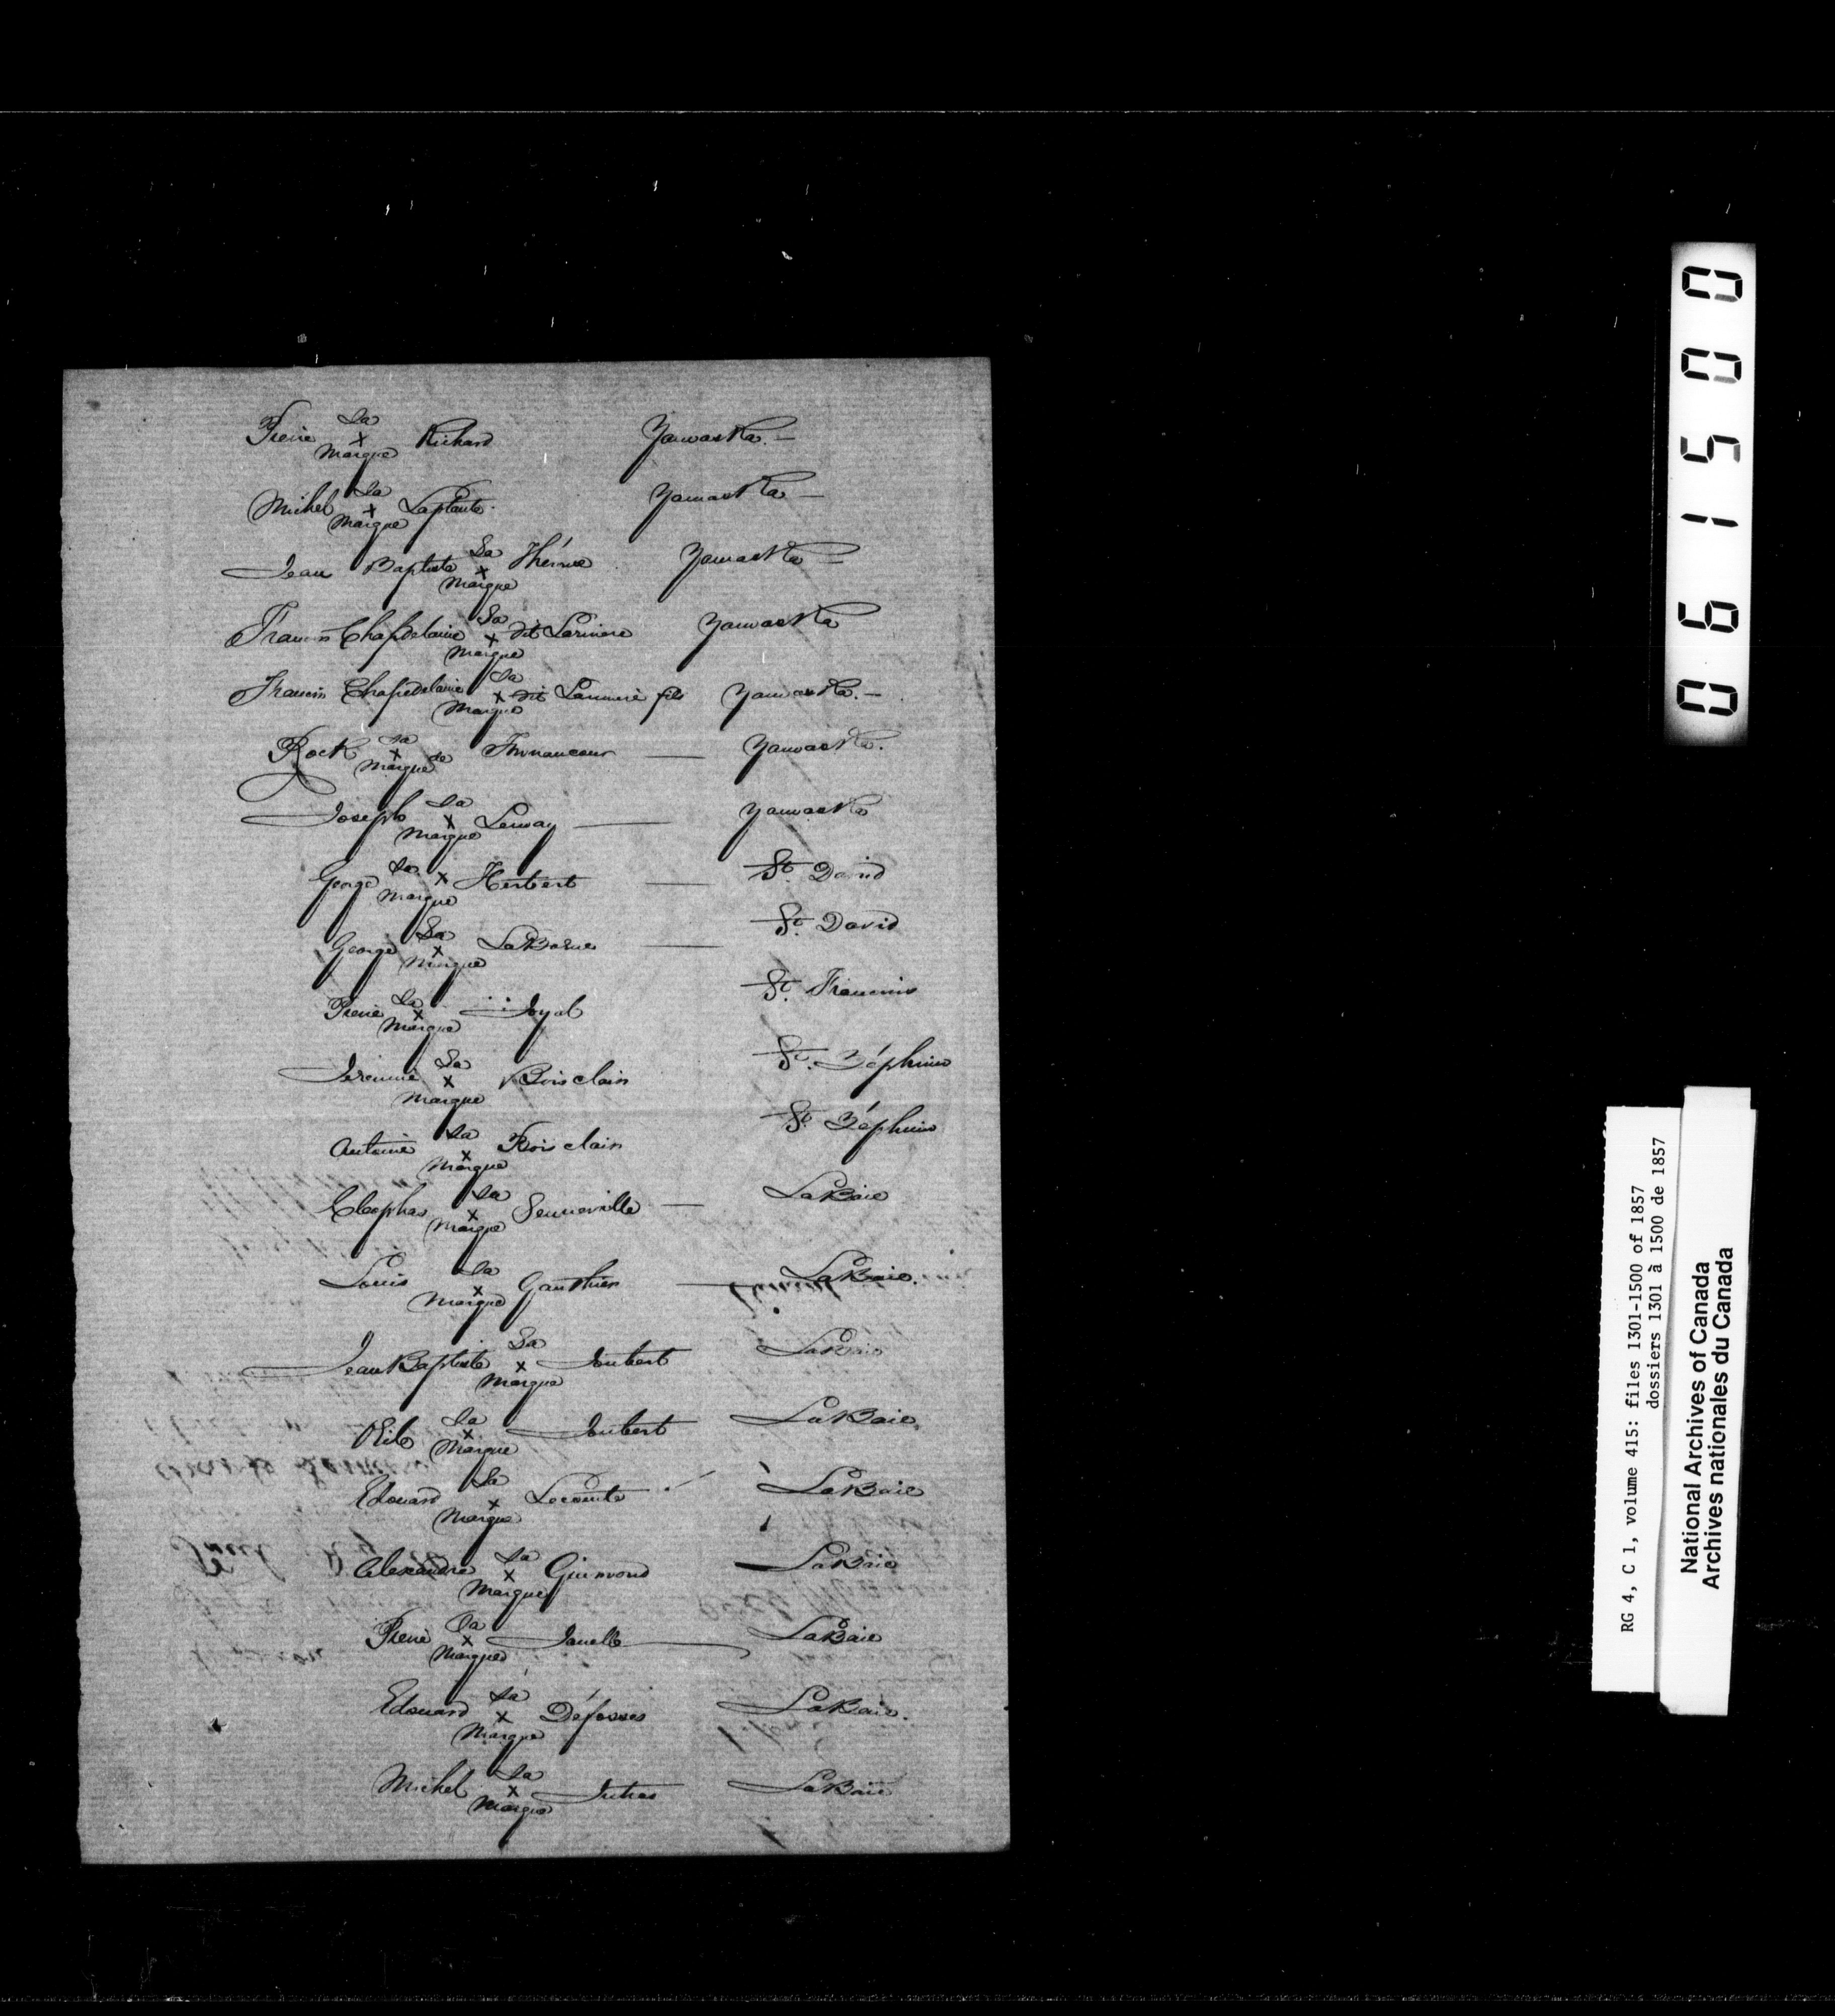 Pierre sa x marque Richard Yamaska. —
Michel sa x marque Laplante. Yamaska —
Jean Baptiste sa x marque Yamaska —
Francis Chapdelaine sa x marque dit Lariviere Yamaska
Francis Chapedelaine sa x marque dit Lariviere fils Yamaska. —
Rock sa x marque de Tonnancour — Yamaska.
Joseph sa x marque Lemay — Yamaska
George sa x marque Herbert — St. David
George sa x marque — St. David
Pierre sa x marque Joyal St. Francois
Jeremie sa x marque Boisclair St. Zéphirin
Antoine sa x marque Boisclair St. Zéphirin
Cleophas sa x marque Senneville — LaBaie
Louis sa x marque Gauthier — LaBaie.
Jean Baptiste sa x marque Joubert LaBaie
sa x marque Joubert LaBaie
Edouard sa x marque Lecomte LaBaie
Alexandre sa x marque Guimond LaBaie
Pierre sa x marque Janelle LaBaie
Edouard sa x marque Défossés LaBaie.
Michel sa x marque Jutras LaBaie
061500
RG 4, C 1, volume 415: files 1301-1500 of 1857
dossiers 1301 à 1500 de 1857
National Archives of Canada
Archives nationales du Canada